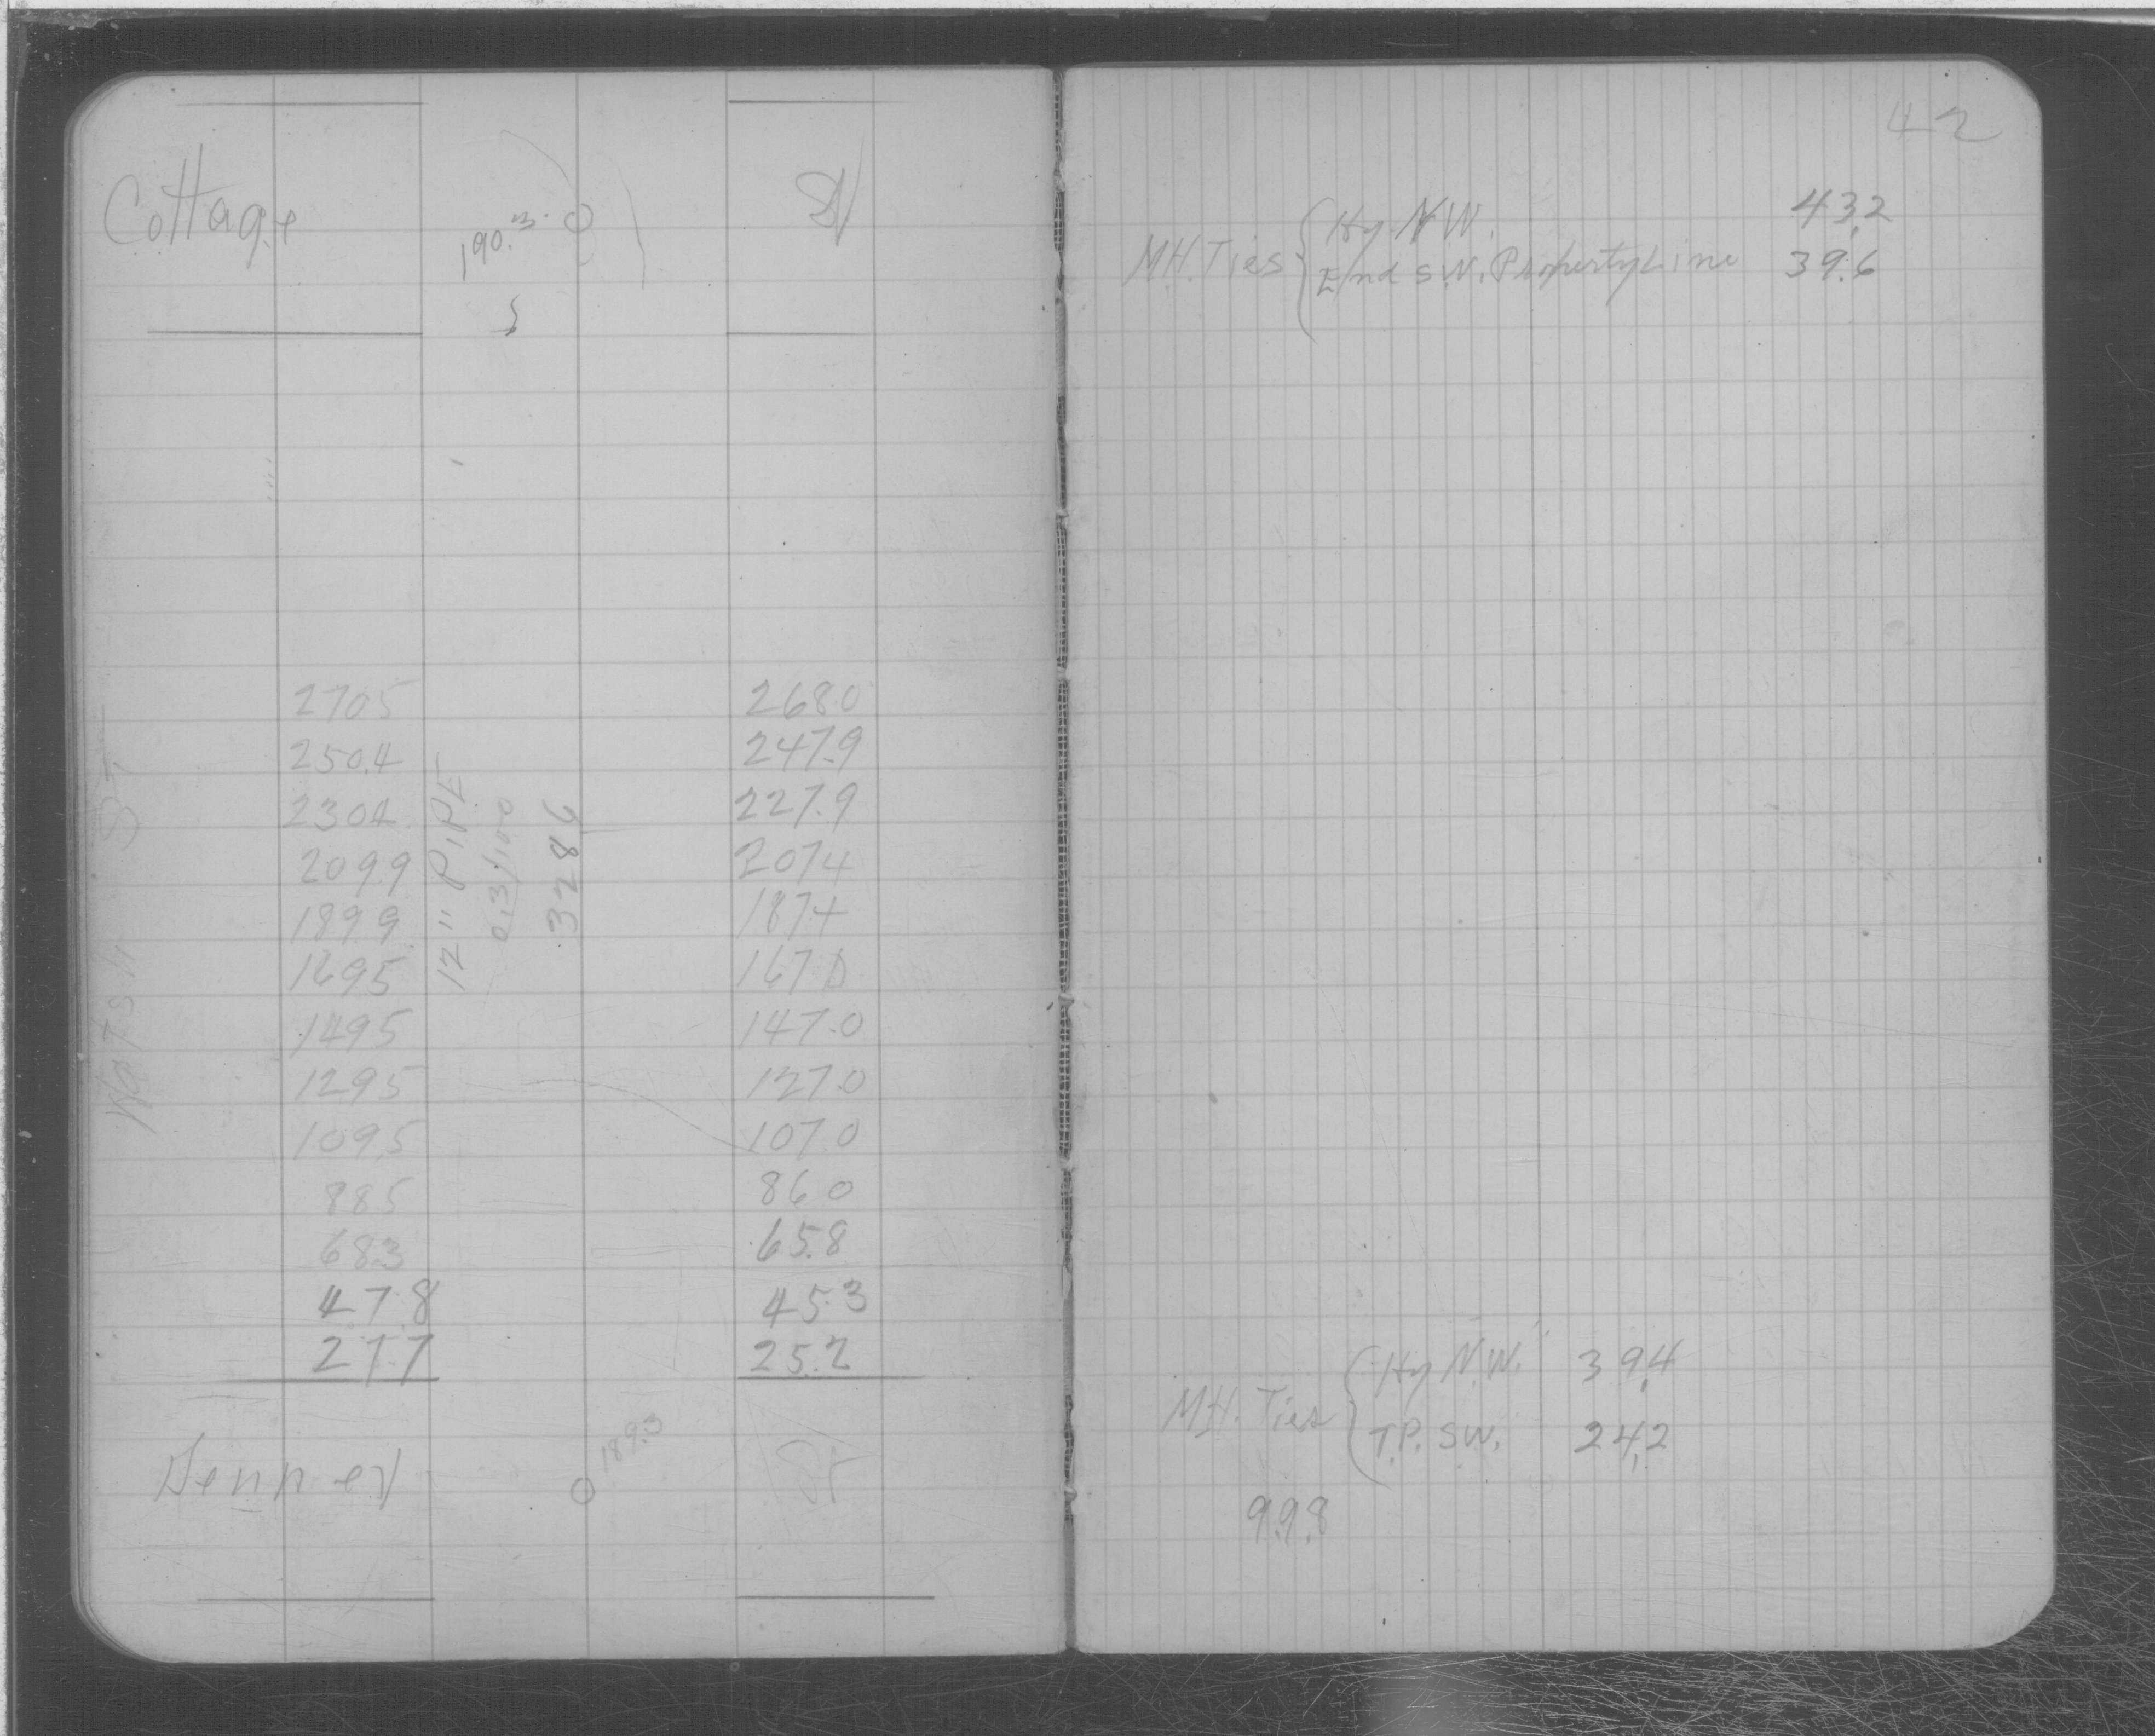 Cottage 190.3 St
270.5 268.0
250.4 247.9
230.4 227.9
209.9 207.4
189.9 187.4
169.5 167.0
149.5 147.0
129.5 127.0
109.5 107.0
88.5 86.0
68.3 65.8
47.8 45.3
27.7 25.2
12" PIPE
0.3/100
328.6
St
189.3
St
42
M.H. Ties { Hy N.W. 43.2
End S.W. Property Line 39.6
M.H. Ties { Hy N.W. 39.4
T.P. S.W. 24.2
99.8